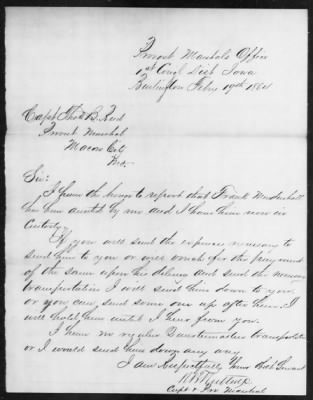 Provost Marshals Office
1st Congl Dist Iowa
Burlington Feby 19th 1864
Capt Thos B. Reed
Provost Marshal
Macon City
Mo.
Sir:
I have the honor to report that Frank Mendenhall
has been arrested by me and I have him now in
Custody.
If you will send the expenses necessary to
send him to you or will vouch for the payment
of the same upon his delivery and send the necessary
transportation I will send him down to you,
or you can send some one up after him. I
will hold him until I hear from you.
I have no regular Quartermasters transportation
or I would send him down any way
I am Respectfully Your Obt Servant
Capt & Pro Marshal